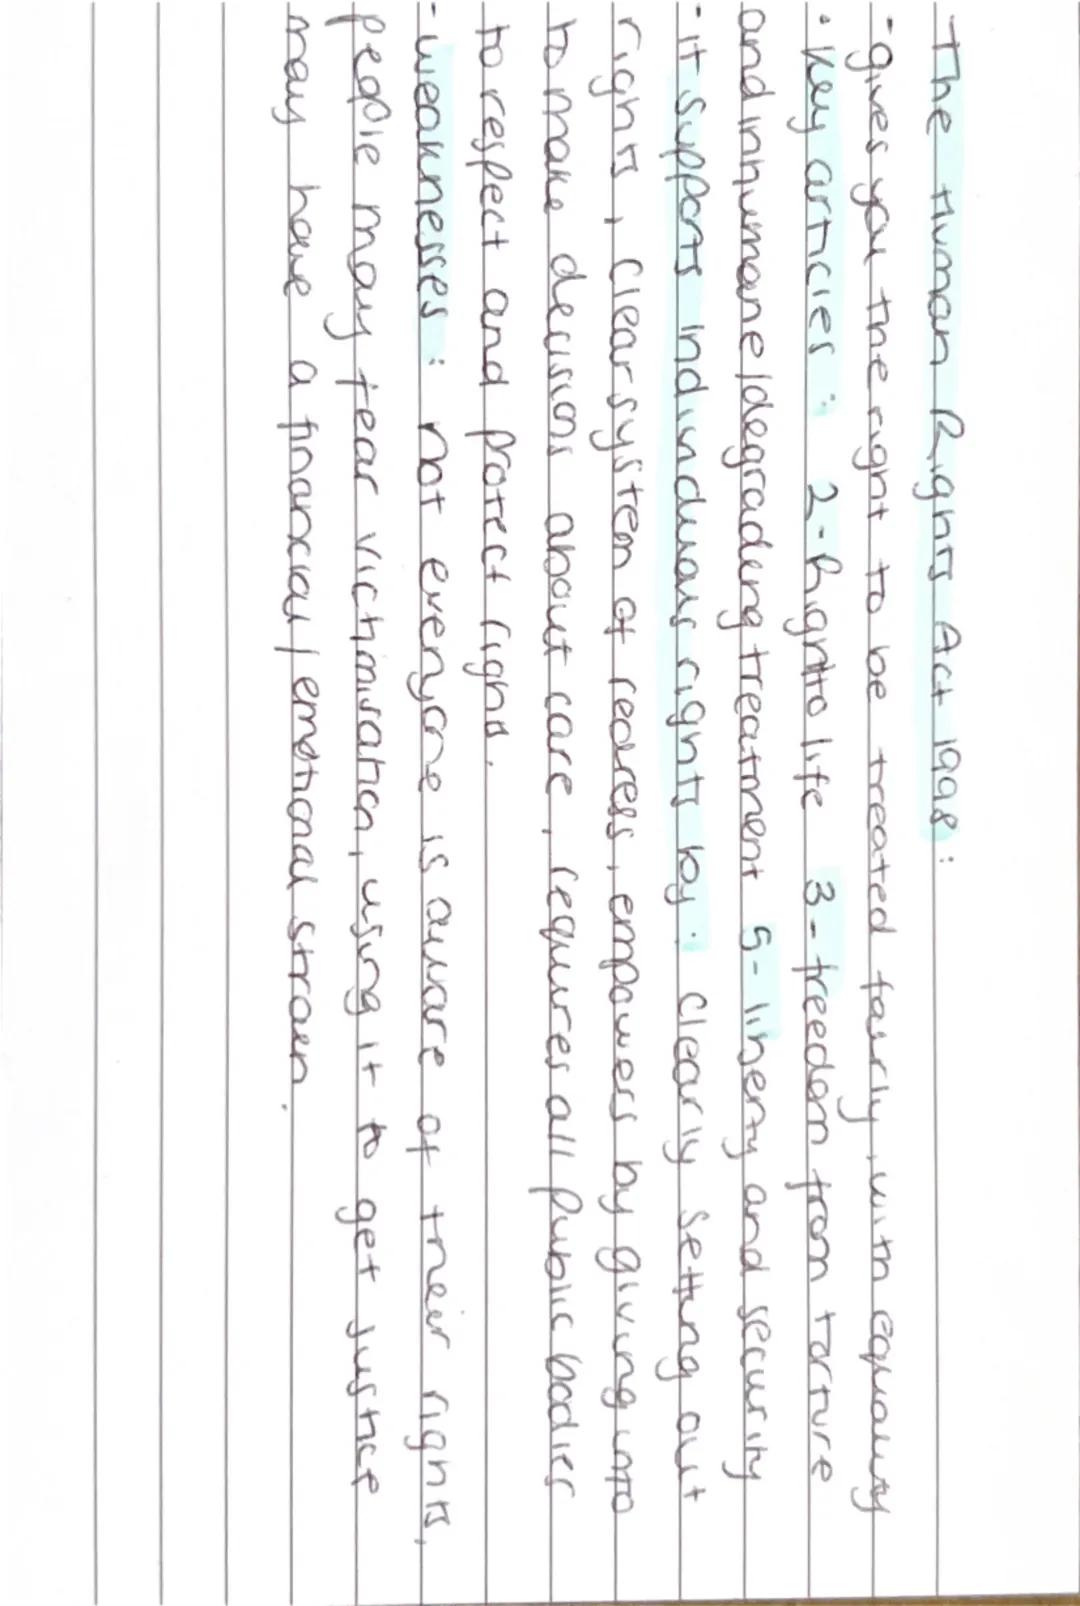 The Human Rights Act 1998:
-gives you the right to be treated fairly, with equality
• Key articles: 2-Right to life 3-freedom from torture
and inhumane/degrading treatment 5-liberty and security
-it supports individuals rights by: clearly setting out
rights, clear system of redress, empowers by giving info
to make decisions about care, requires all public bodies
to respect and protect rights.
-weaknesses: not everyone is aware of their rights,
people may fear victimisation, using it to get justice
may have a financial/emotional strain.